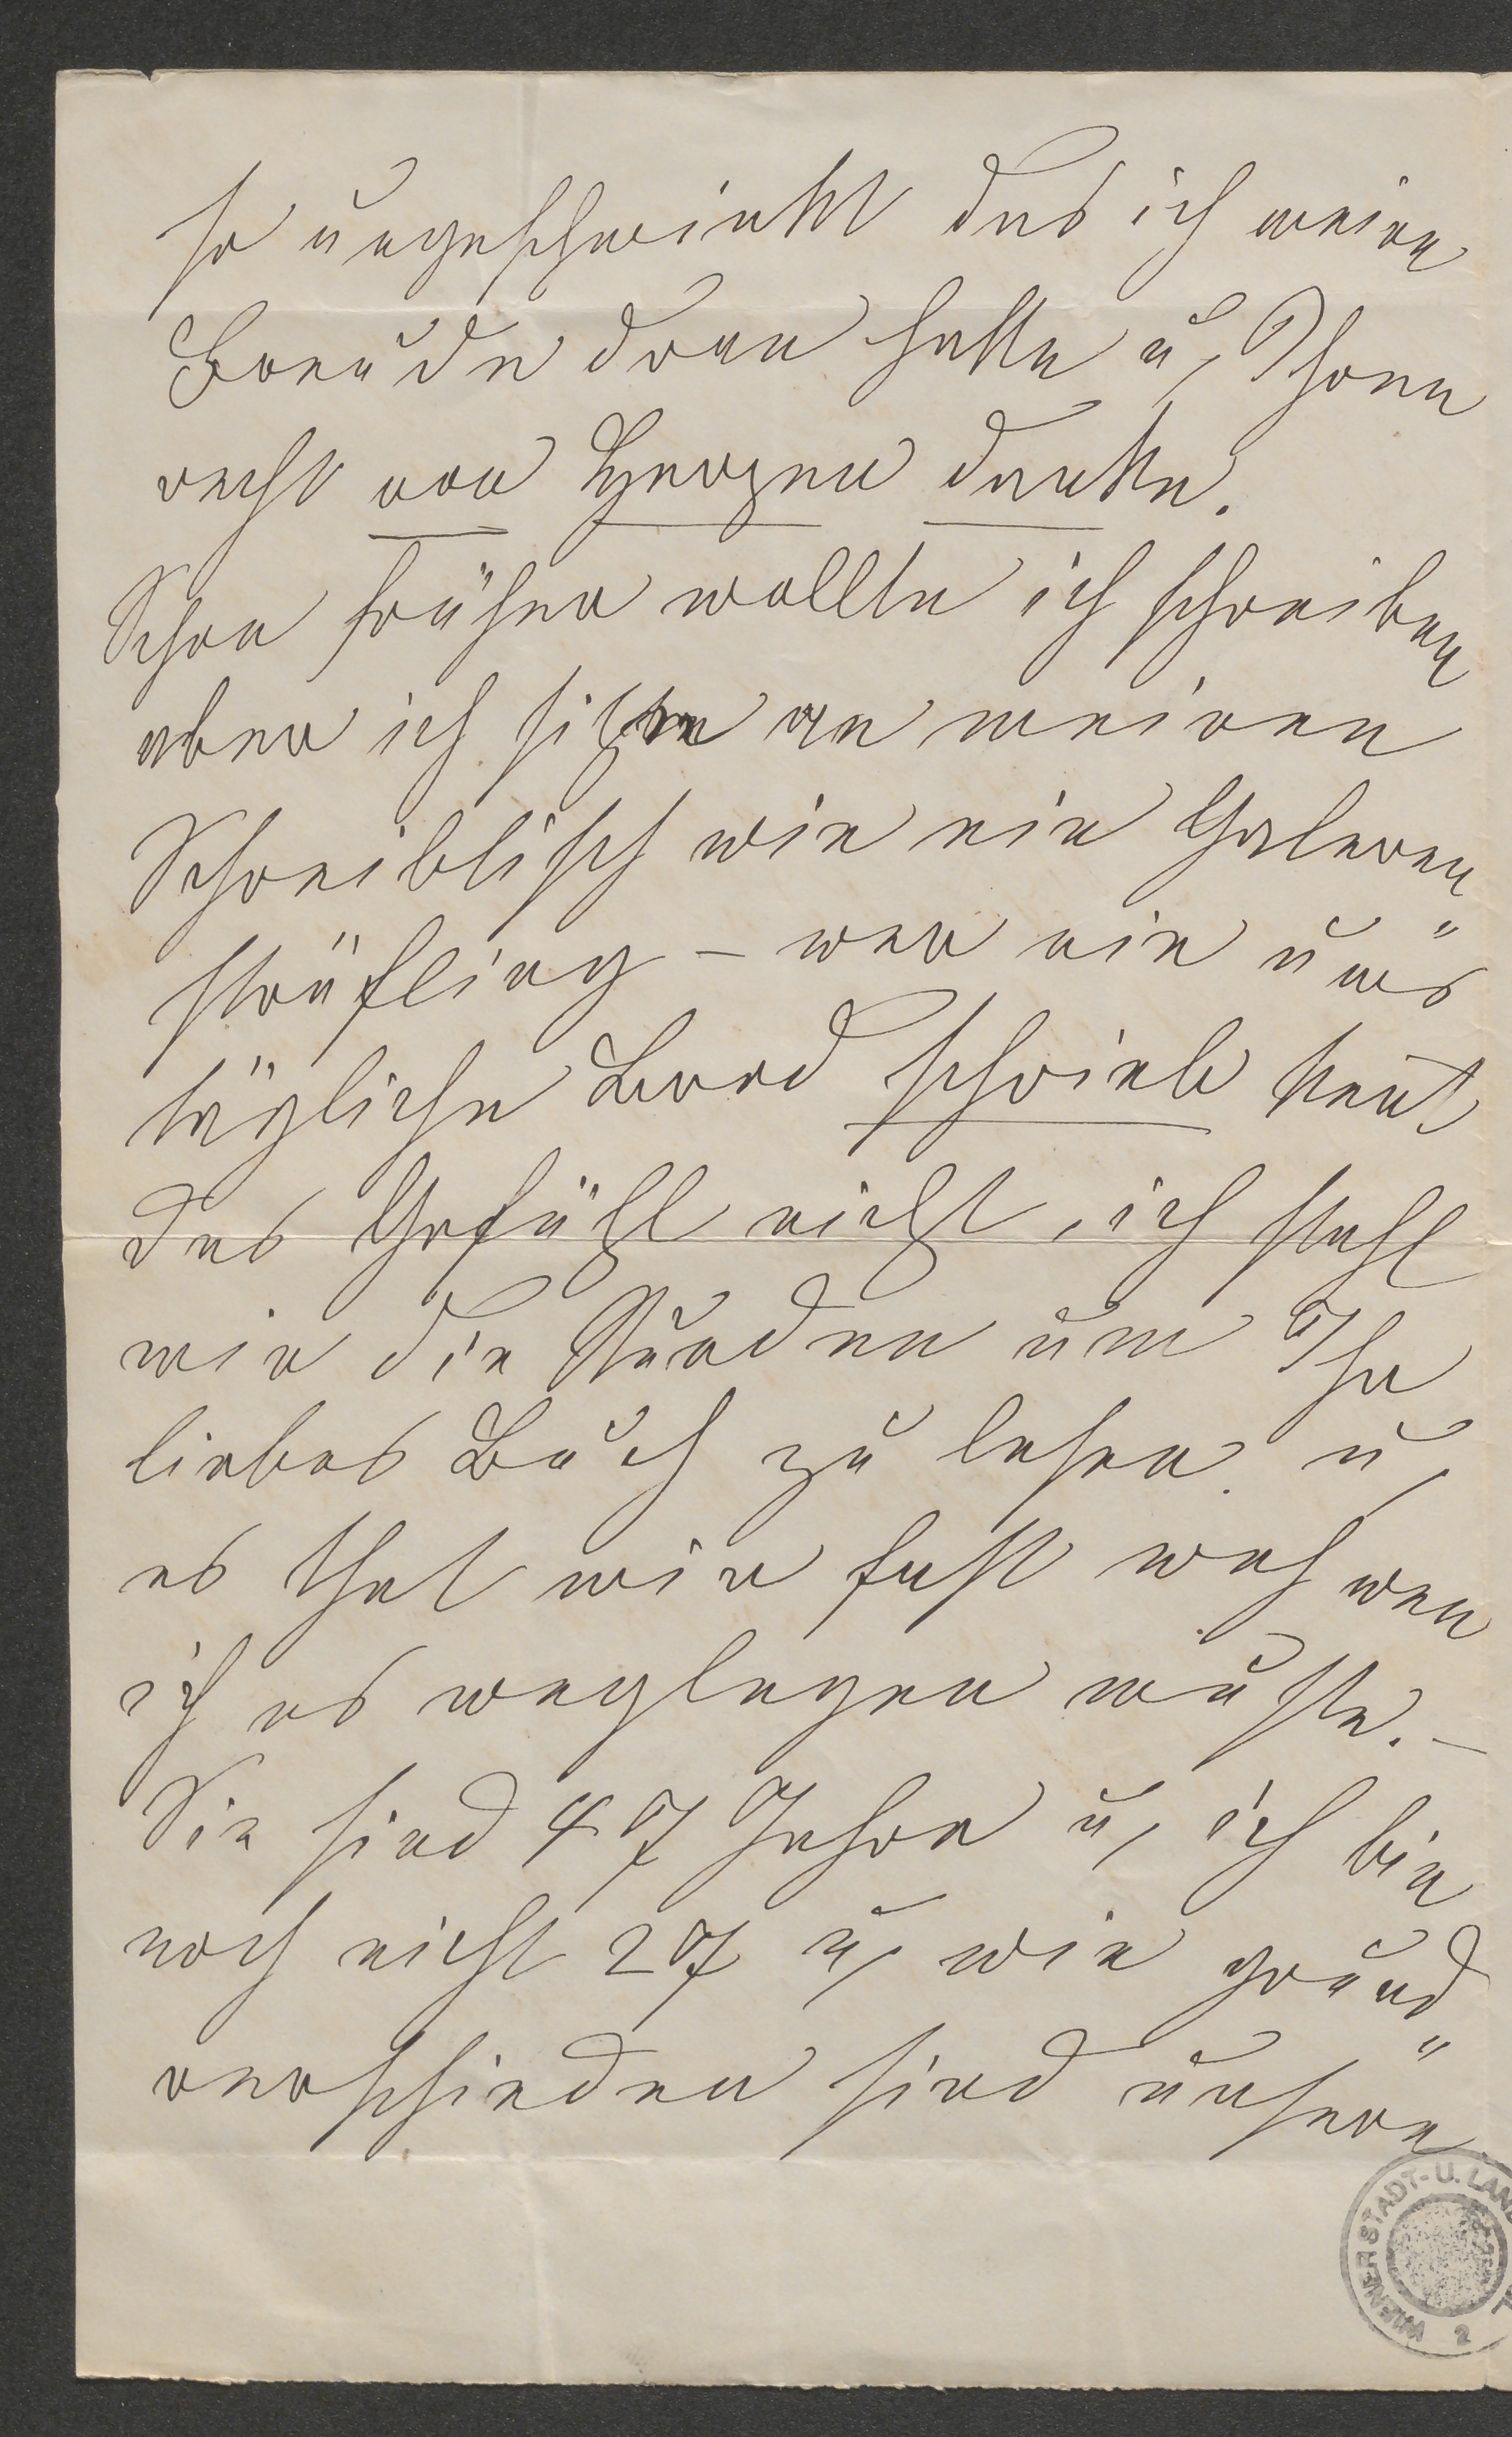 so ungeschminkt das ich meine
Freude dran hatte u, Ihnen
recht von Herzen danke.
Schon früher wollte ich schreiben
aber ich sitze an meinen
Schreibtisch wie ein Galeeren
sträfling – wer nie ums
tägliche Brod schrieb kent
das Gefühl nicht, ich stahl
mir die Stunden um Ihr
liebes Buch zu lesen u,
es that mir fast weh wen
ich es weglegen muste. –
Sie sind 47 Jahre u, ich bin
noch nicht 27 u, wie grund"
verschieden sind unsere
WIENER STADT- U. LAN
2